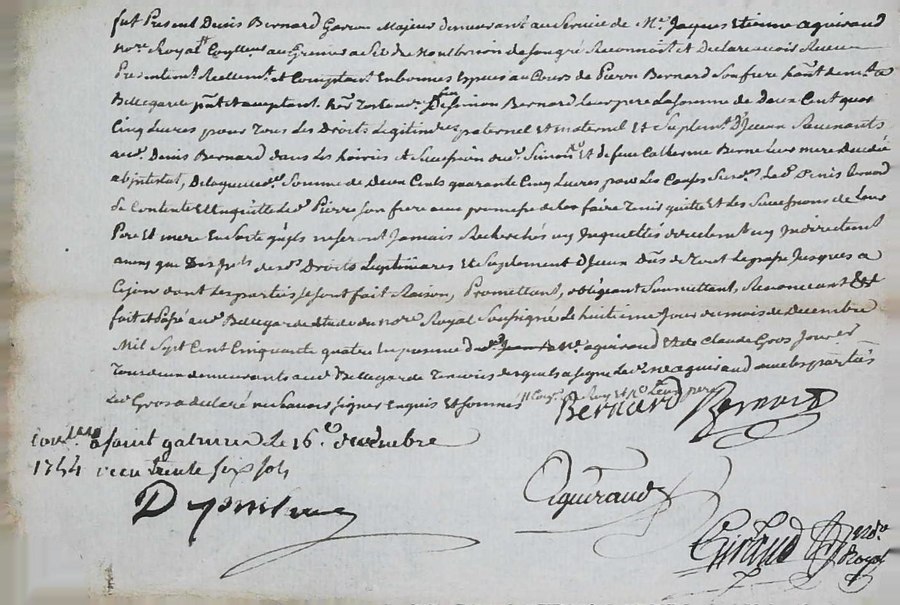 fut Present Denis Bernard Garçon Majeur demeurant au service de Mr Jaques Etienne aguiraud
nore Royal et Conseiller au Grenier a Sel de Montbrison de son gré Reconnoit et Declare avoir Receu
Presentement Reellemt et Comptant En bonnes Especes au Cours de Pierre Bernard son frere hant demt a
Bellegarde pnt et acceptant hér Testam. De feu Simon Bernard leur pere La somme de Deux Cent quar
Cinq Livres pour Tous Les Droits Legitimes paternel Et maternel Et Suplemt D'Jceux Revenants
aud. Denis Bernard dans Les hoiries et Succession dud. Simon Bd Et de feue Catherine Berne Leur mere Decedée
abjntestat, De laquelle de. Somme de Deux Cents quarante Cinq Livres pour Les Causes Susd. Led. Denis Bernard
Se Contente Et En quitte Led. Pierre son frere avec promesse de le faire Tenir quitte Et des Successions de Leurs
Pere Et mere En Sorte qu'jls ne seront Jamais Recherchés ny jnquiettés directement ny jndirectemt
ainsy que Des jnts desd. Droits Legitimaires et Suplement D'Jceux Dûs de Tout Le passé Jusques a
Ce jour dont Les parties se sont fait Raison, Promettant, obligeant Soumettant, Renonceant
fait et Passé aud. Bellegarde Etude du nore Royal Soussigné Le huitieme Jour du mois de Decembre
Mil Sept Cent Cinquante quatre En presence de Me aguiraud Et de Claude Gros Jour
Tous deux demeurants aud. Bellegarde Temoins desquels a signé Led. Me aguiraud avec les parties
Led. Gros a declaré ne sçavoir signer Enquis Et sommé
Bernard Bernard
a saint galmier Le 16e decembre
1754 receu trente six sols
aguiraud
Giraud nore Royal